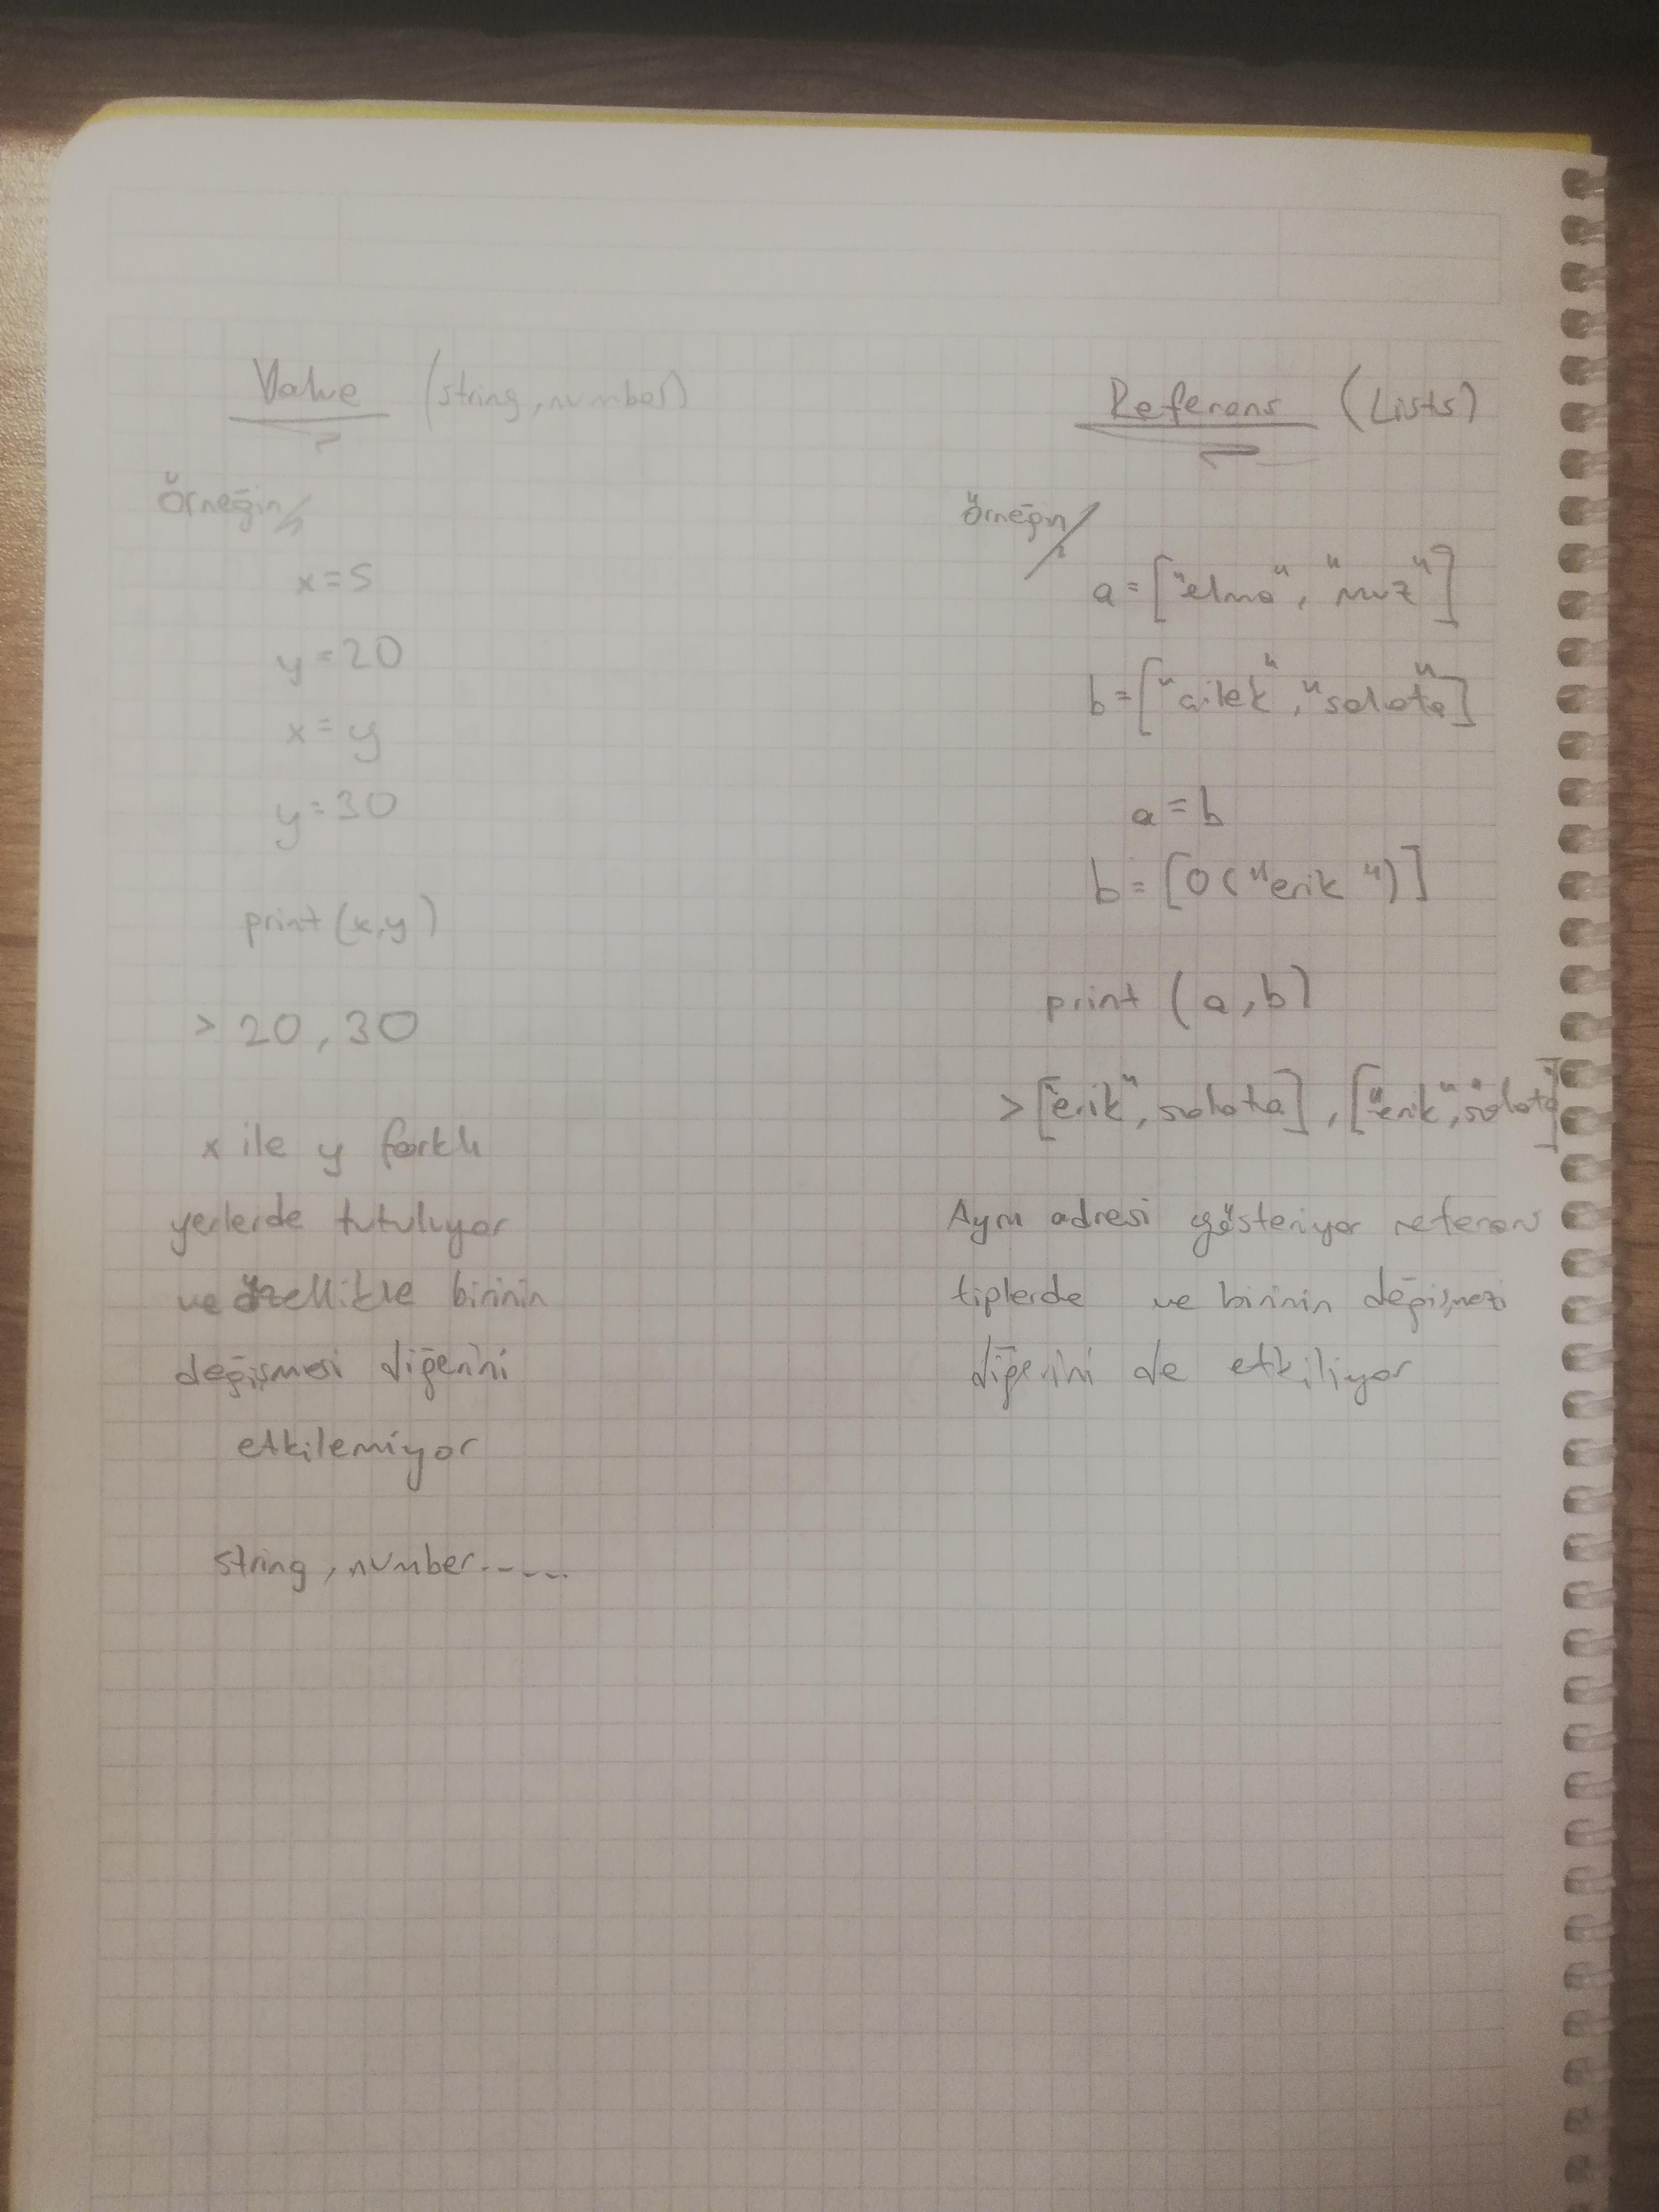 Value (string, number)
Örneğin
x=5
y=20
x=y
y=30
print(x,y)
> 20, 30
x ile y farklı
yerlerde tutuluyor
ve özellikle birinin
değişmesi diğerini
etkilemiyor
string, number-----
Referans (Lists)
Örneğin
a=["elma", "muz"]
b=["çilek", "salata"]
a=b
b=[0("erik")]
print (a,b)
> ["erik", salata], ["erik", "salata"]
Aynı adresi gösteriyor referans
tiplerde ve birinin değişmesi
diğerini de etkiliyor